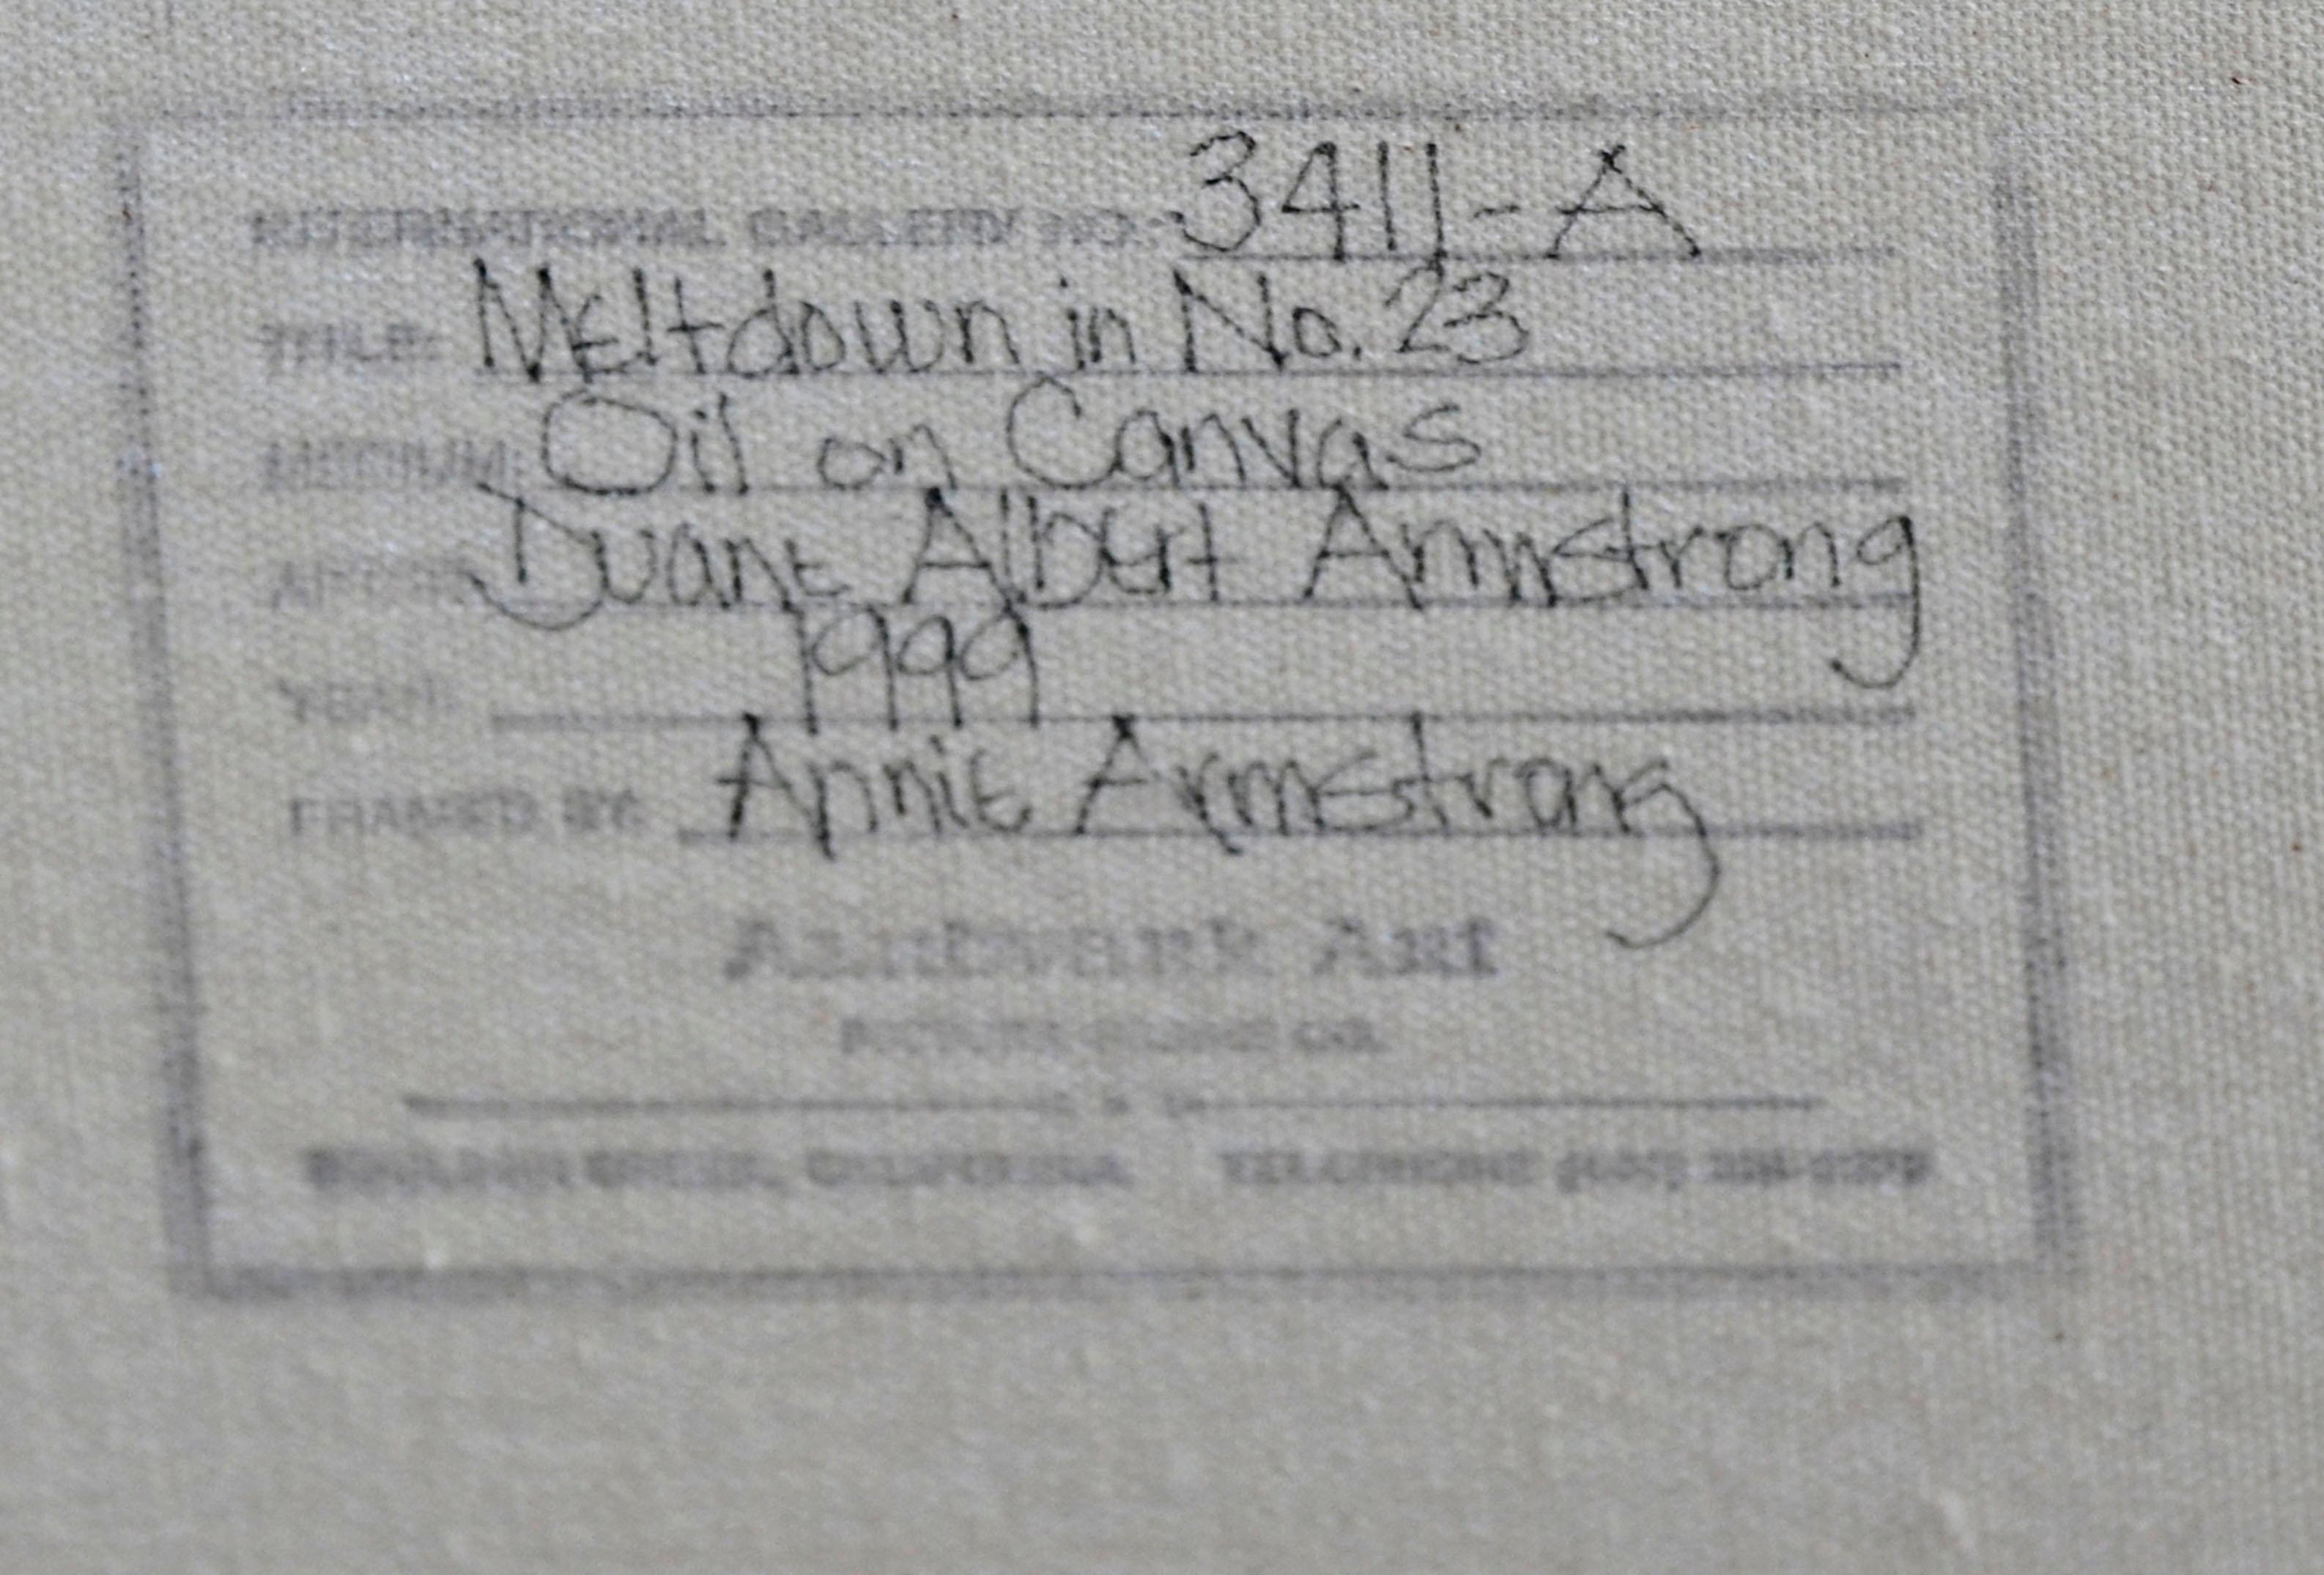 INTERNATIONAL GALLERY NO. 3411-A
TITLE: Meltdown in No. 23
MEDIUM: Oil on Canvas
ARTIST: Duane Albert Armstrong
YEAR: 1999
FRAMED BY: Annie Armstrong
Art
CALIFORNIA TELEPHONE